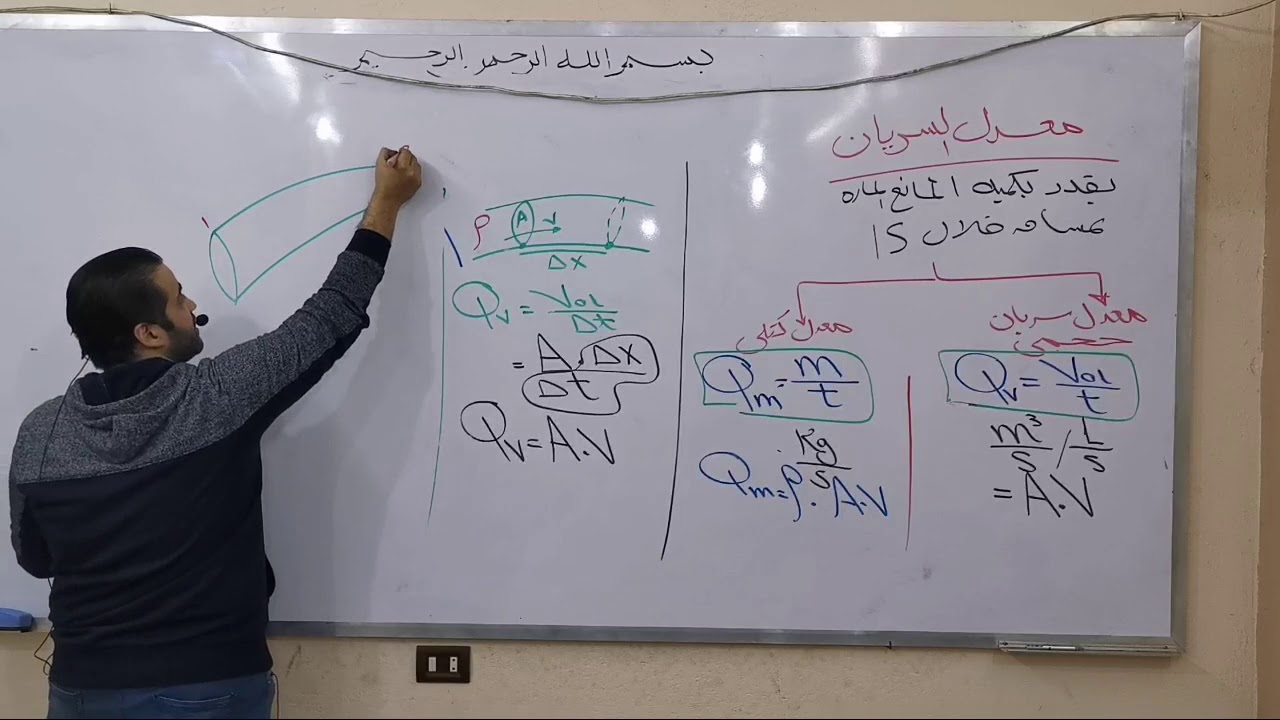 بسم الله الرحمن الرحيم
معدل السريان
يقدر بكميه المائع الماره
بمسافه خلال 1S
معدل سريان
حجمى
Qv = Vol / t
m³/s / L/s
= A.V
معدل كتلى
Qm = m / t
Kg/s
Qm = ρ . A.V
ρ A v
Δx
Qv = Vol / Δt
= A . Δx / Δt
Qv = A.V